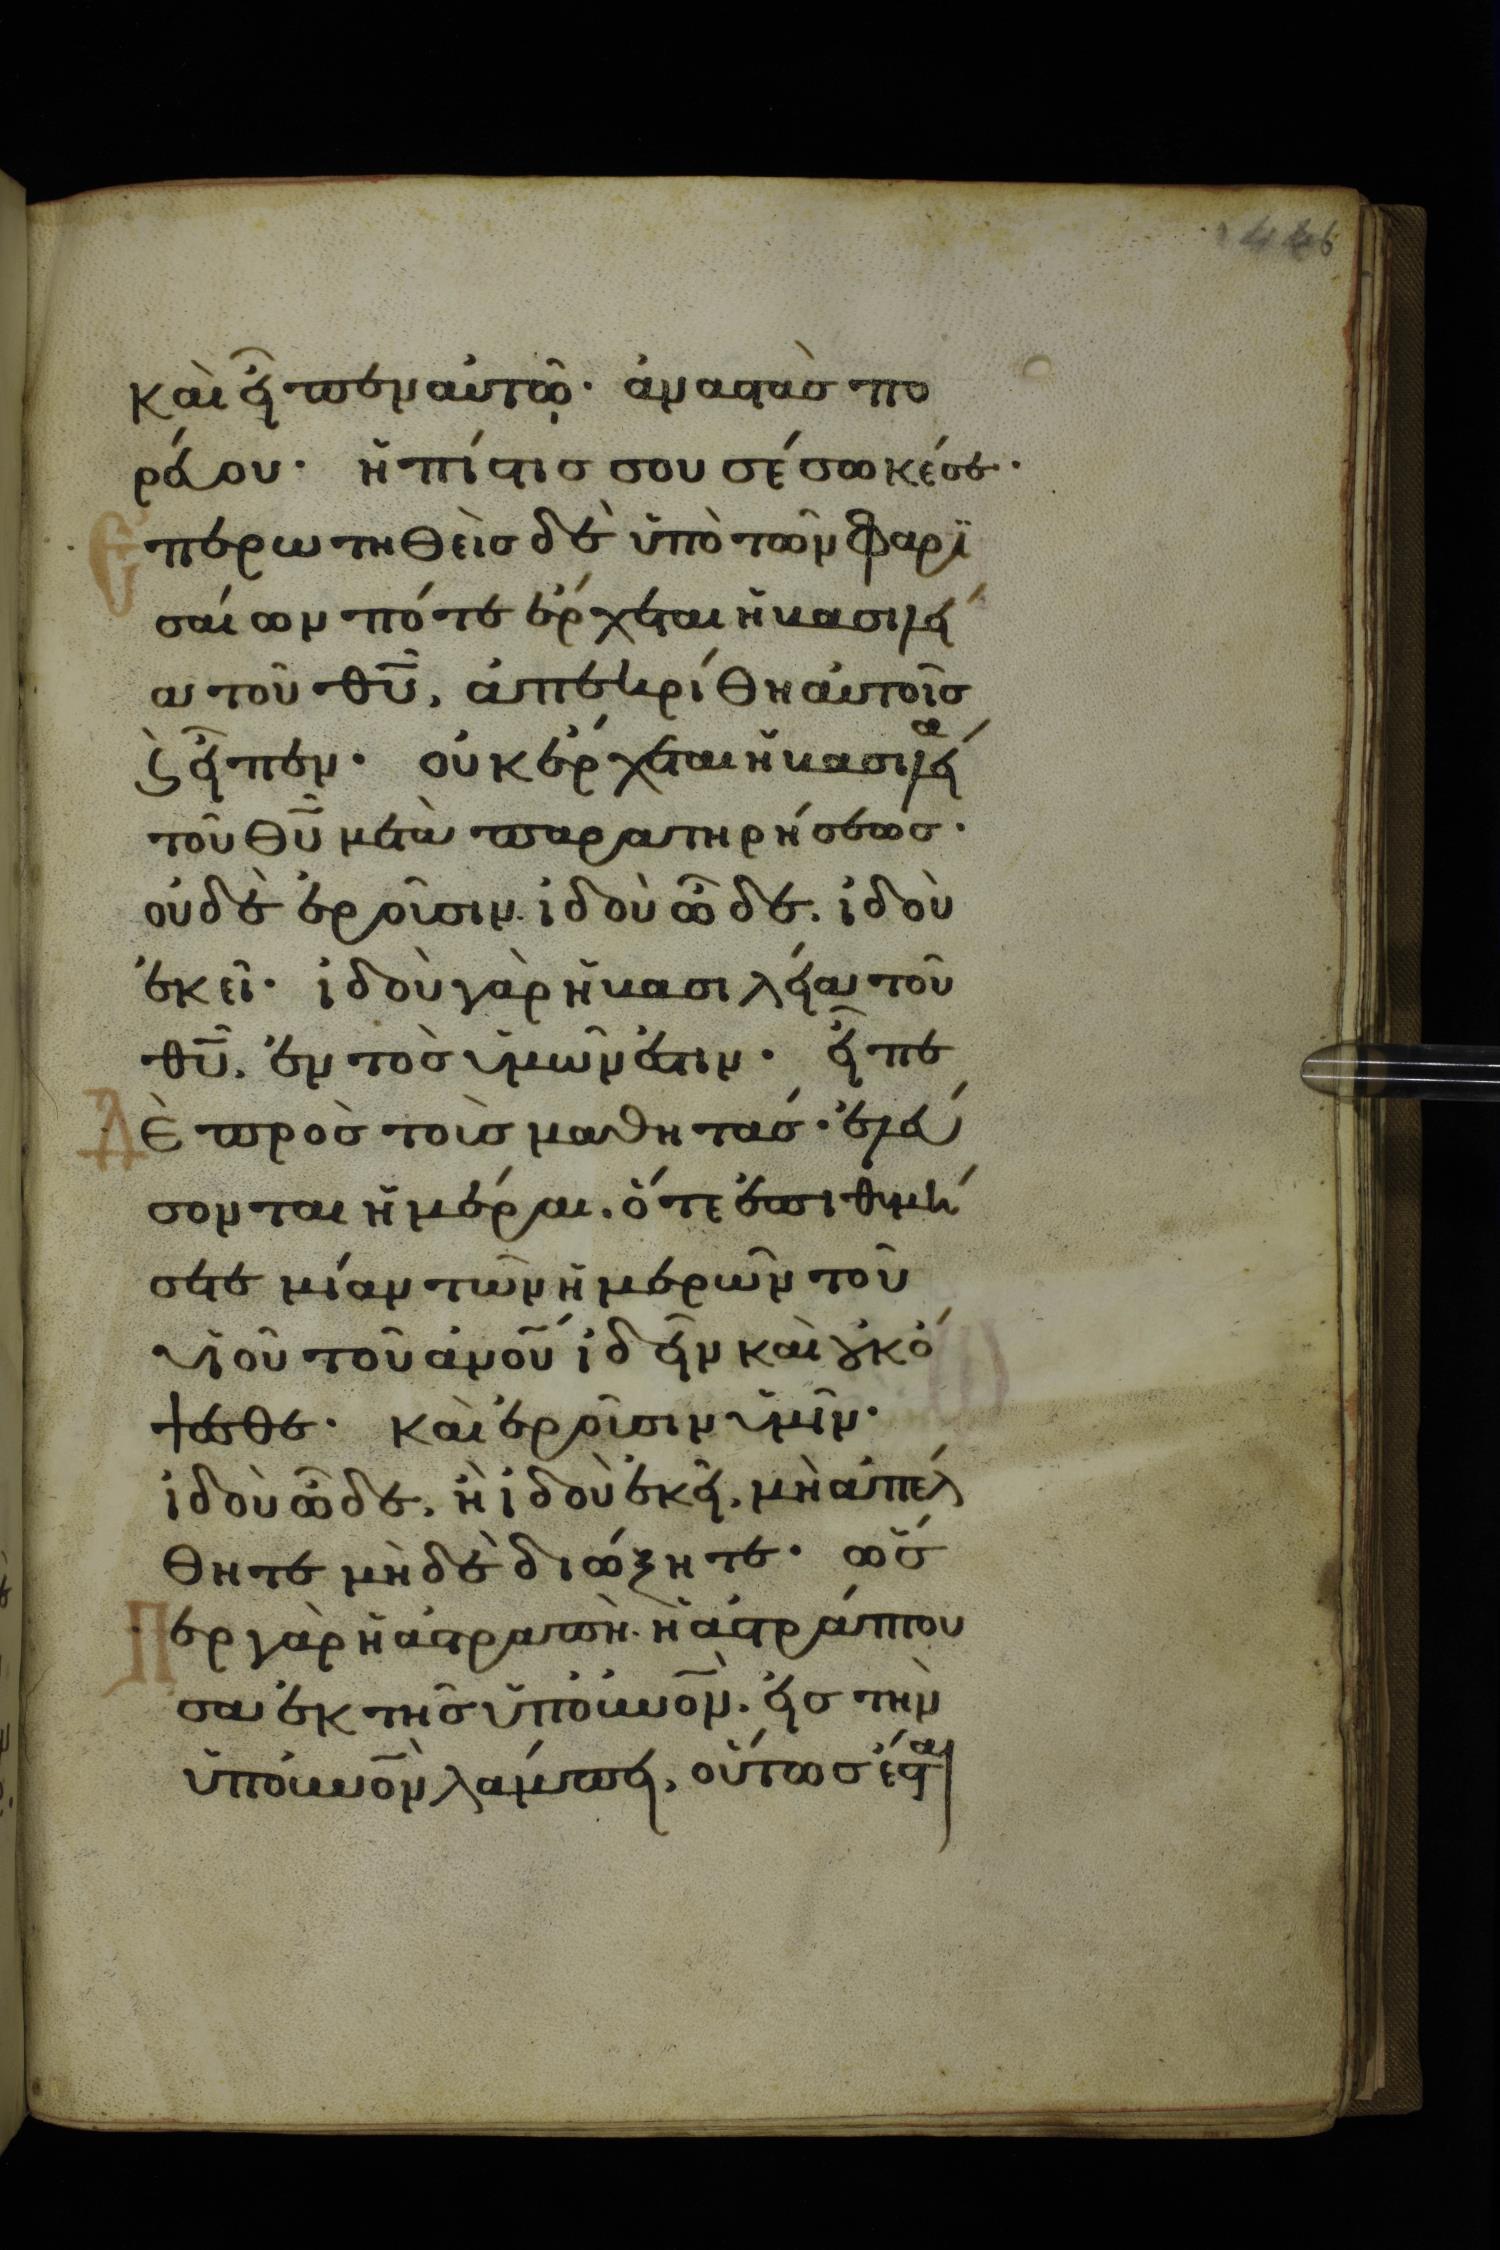 146
καὶ εἶπεν αὐτῶ· ἀναστὰς πο
ρεύου· ἡ πίστις σου σέσωκέ σε·
Ἐπερωτηθεὶς δὲ ὑπὸ τῶν φαρϊ
σαίων πότε ἔρχεται ἡ βασιλεί
α τοῦ θυ̅, ἀπεκρίθη αὐτοῖς
καὶ εἶπεν· οὐκ ἔρχεται ἡ βασιλεία
τοῦ θυ̅ μετὰ παρατηρήσεως·
οὐδὲ ἐροῦσιν· ἰδοὺ ὧδε. ἰδοὺ
ἐκεῖ· ἰδοὺ γὰρ ἡ βασιλεία τοῦ
θυ̅, ἐντὸς ὑμῶν ἐστιν· εἶπε
Δὲ πρὸς τοὺς μαθητάς· ἐλεύ
σονται ἡμέραι, ὅτε ἐπιθυμή
σετε μίαν τῶν ἡμερῶν τοῦ
υἱοῦ τοῦ ἀνου̅ ἰδεῖν καὶ οὐκ ὄ
ψεσθε· καὶ ἐροῦσιν ὑμῖν·
ἰδοὺ ὧδε, ἢ ἰδοὺ ἐκεῖ, μὴ ἀπέλ
θητε μὴ δὲ διώξητε· ὥς
Περ γὰρ ἡ ἀστραπὴ· ἡ ἀστράπτου
σα ἐκ τῆς ὑπὸ οὐνον̅, εἰς τὴν
ὑπὸ οὐνον̅ λάμπει, οὕτως ἔσται